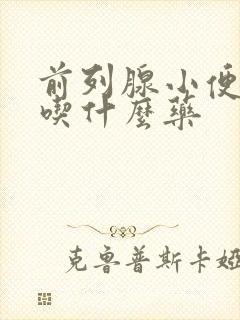 前列腺小便
喫什麼藥
克鲁普斯卡娅